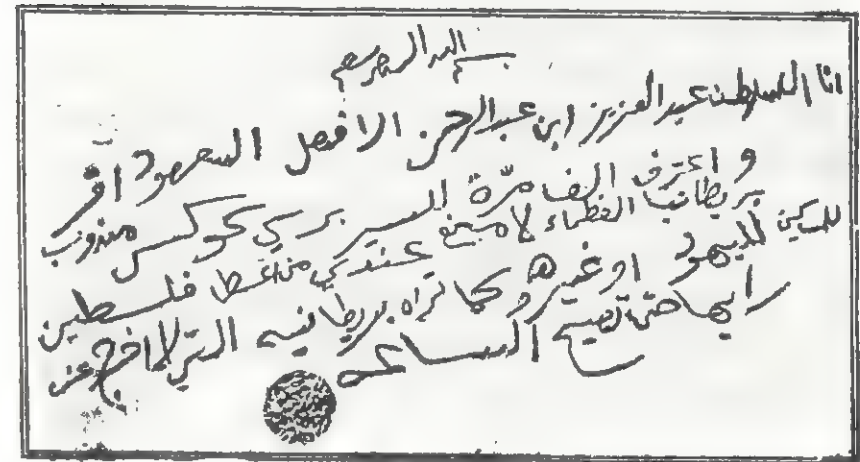 بسم الله الرحمن الرحيم
انا السلطان عبد العزيز ابن عبد الرحمن الافصل السعهود اقر
و اعترف الف مرّة السير برسي كوكس مندوب
بريطانيا العظماء لا مانع عندي من اعطا فلسطين
للمساكين اليهود او غيرهم وكما تراه بريطانيه التي لا اخرج عن
رايها حتى تصيح الساعه